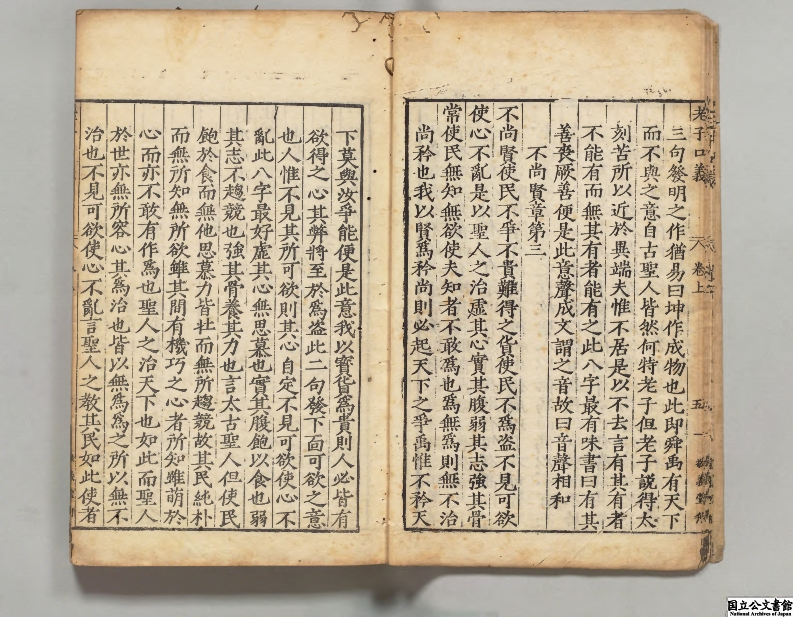 三句發明之作猶易曰坤作成物也此即舜禹有天下
而不與之意自古聖人皆然何特老子但老子說得太
刻苦所以近於異端夫惟不居是以不去言有其有者
不能有而無其有者能有之此八字最有味書曰有其
善喪厥善便是此意聲成文謂之音故曰音聲相和
不尚賢章第三
不尚賢使民不爭不貴難得之貨使民不爲盗不見可欲
使心不亂是以聖人之治虛其心實其腹弱其志強其骨
常使民無知無欲使夫知者不敢爲也爲無爲則無不治
尚矜也我以賢爲矜尚則必起天下之爭禹惟不矜天
老子口義
卷上
五
下莫與汝爭能便是此意我以寳貨爲貴則人必皆有
欲得之心其弊將至於爲盗此二句發下面可欲之意
也人惟不見其所可欲則其心自定不見可欲使心不
亂此八字最好虛其心無思慕也實其腹飽以食也弱
其志不趨競也強其骨養其力也言太古聖人但使民
飽於食而無他思慕力皆壮而無所趨競故其民純朴
而無所知無所欲雖其間有機巧之心者所知雖萌於
心而亦不敢有作爲也聖人之治天下也如此而聖人
於世亦無所容心其爲治也皆以無爲爲之所以無不
治也不見可欲使心不亂言聖人之教其民如此使者
国立公文書館
National Archives of Japan